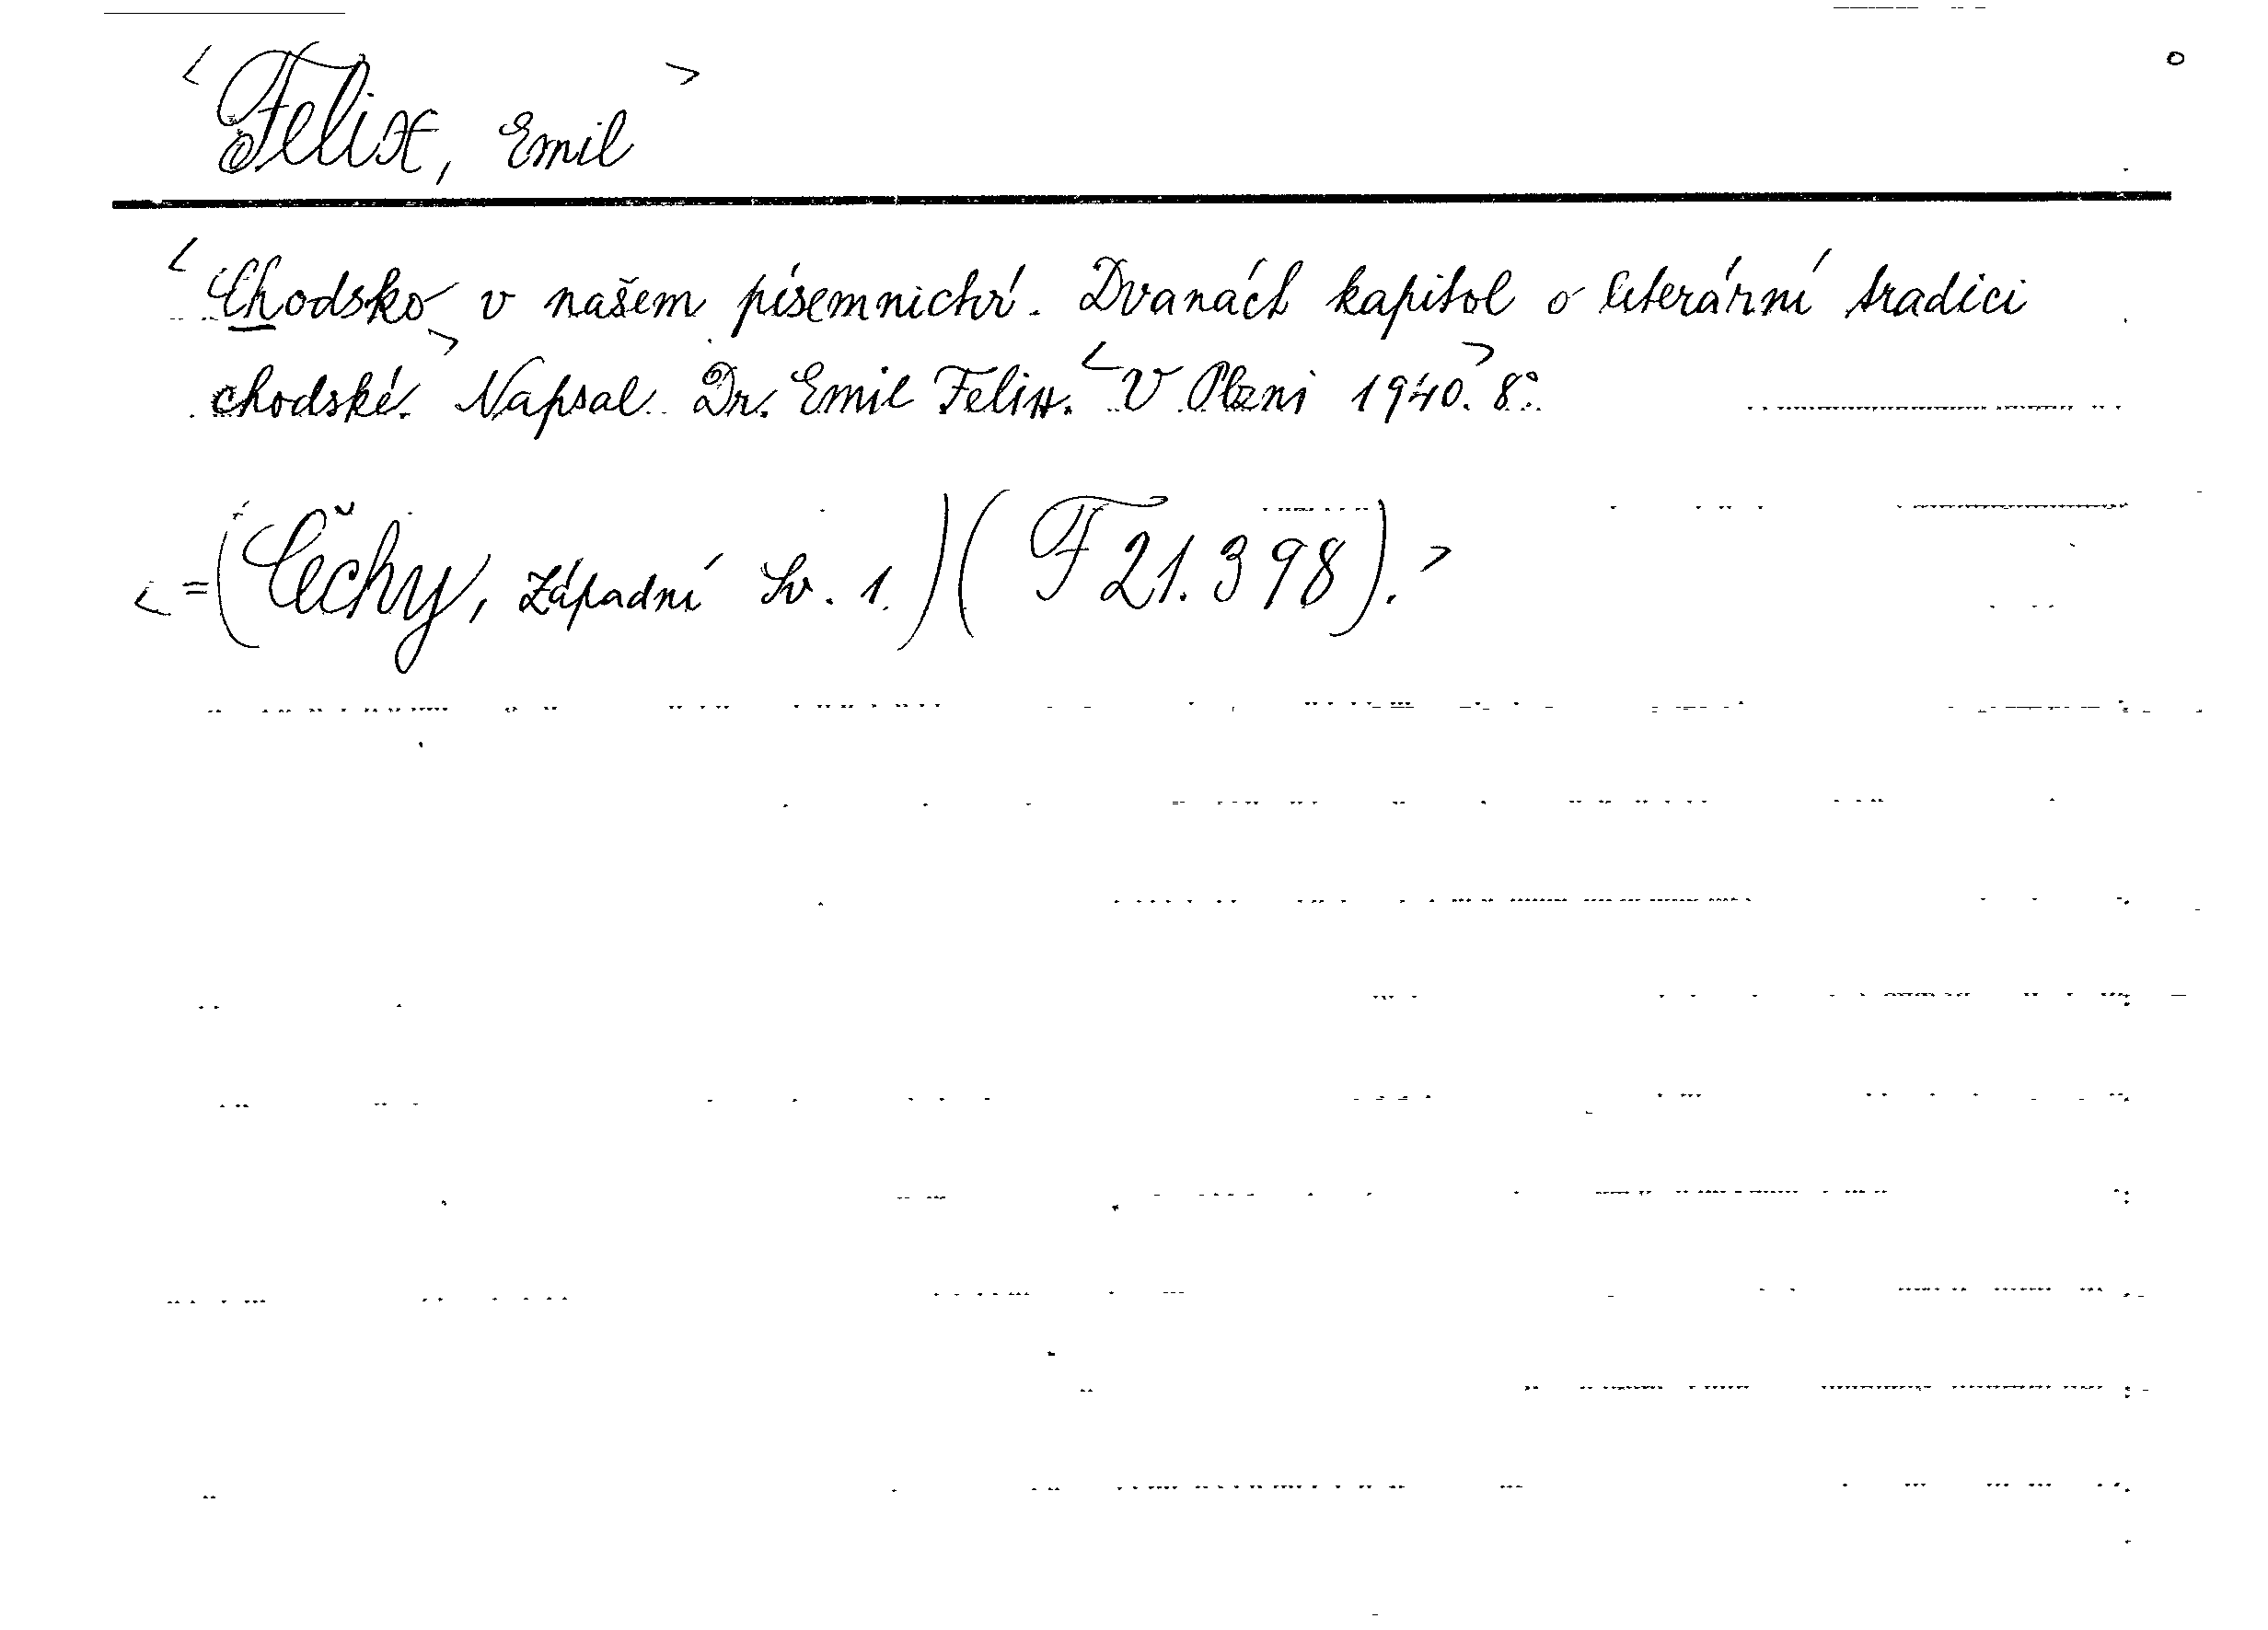 <Felix, Emil>
<Chodsko v našem písemnictví. Dvanáct kapitol o literární tradici
chodské.> Napsal Dr. Emil Felix. <V Plzni 1940.> 8°.
<=(Čechy, západní Sv. 1.)(F 21.398).>